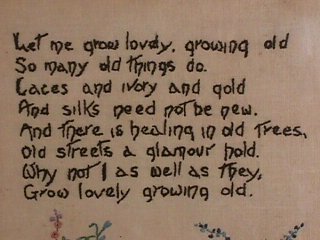 Let me grow lovely, growing old
So many old things do.
Laces and ivory and gold
And silks need not be new.
And there is healing in old trees,
Old streets a glamour hold.
Why not I as well as they,
Grow lovely growing old.